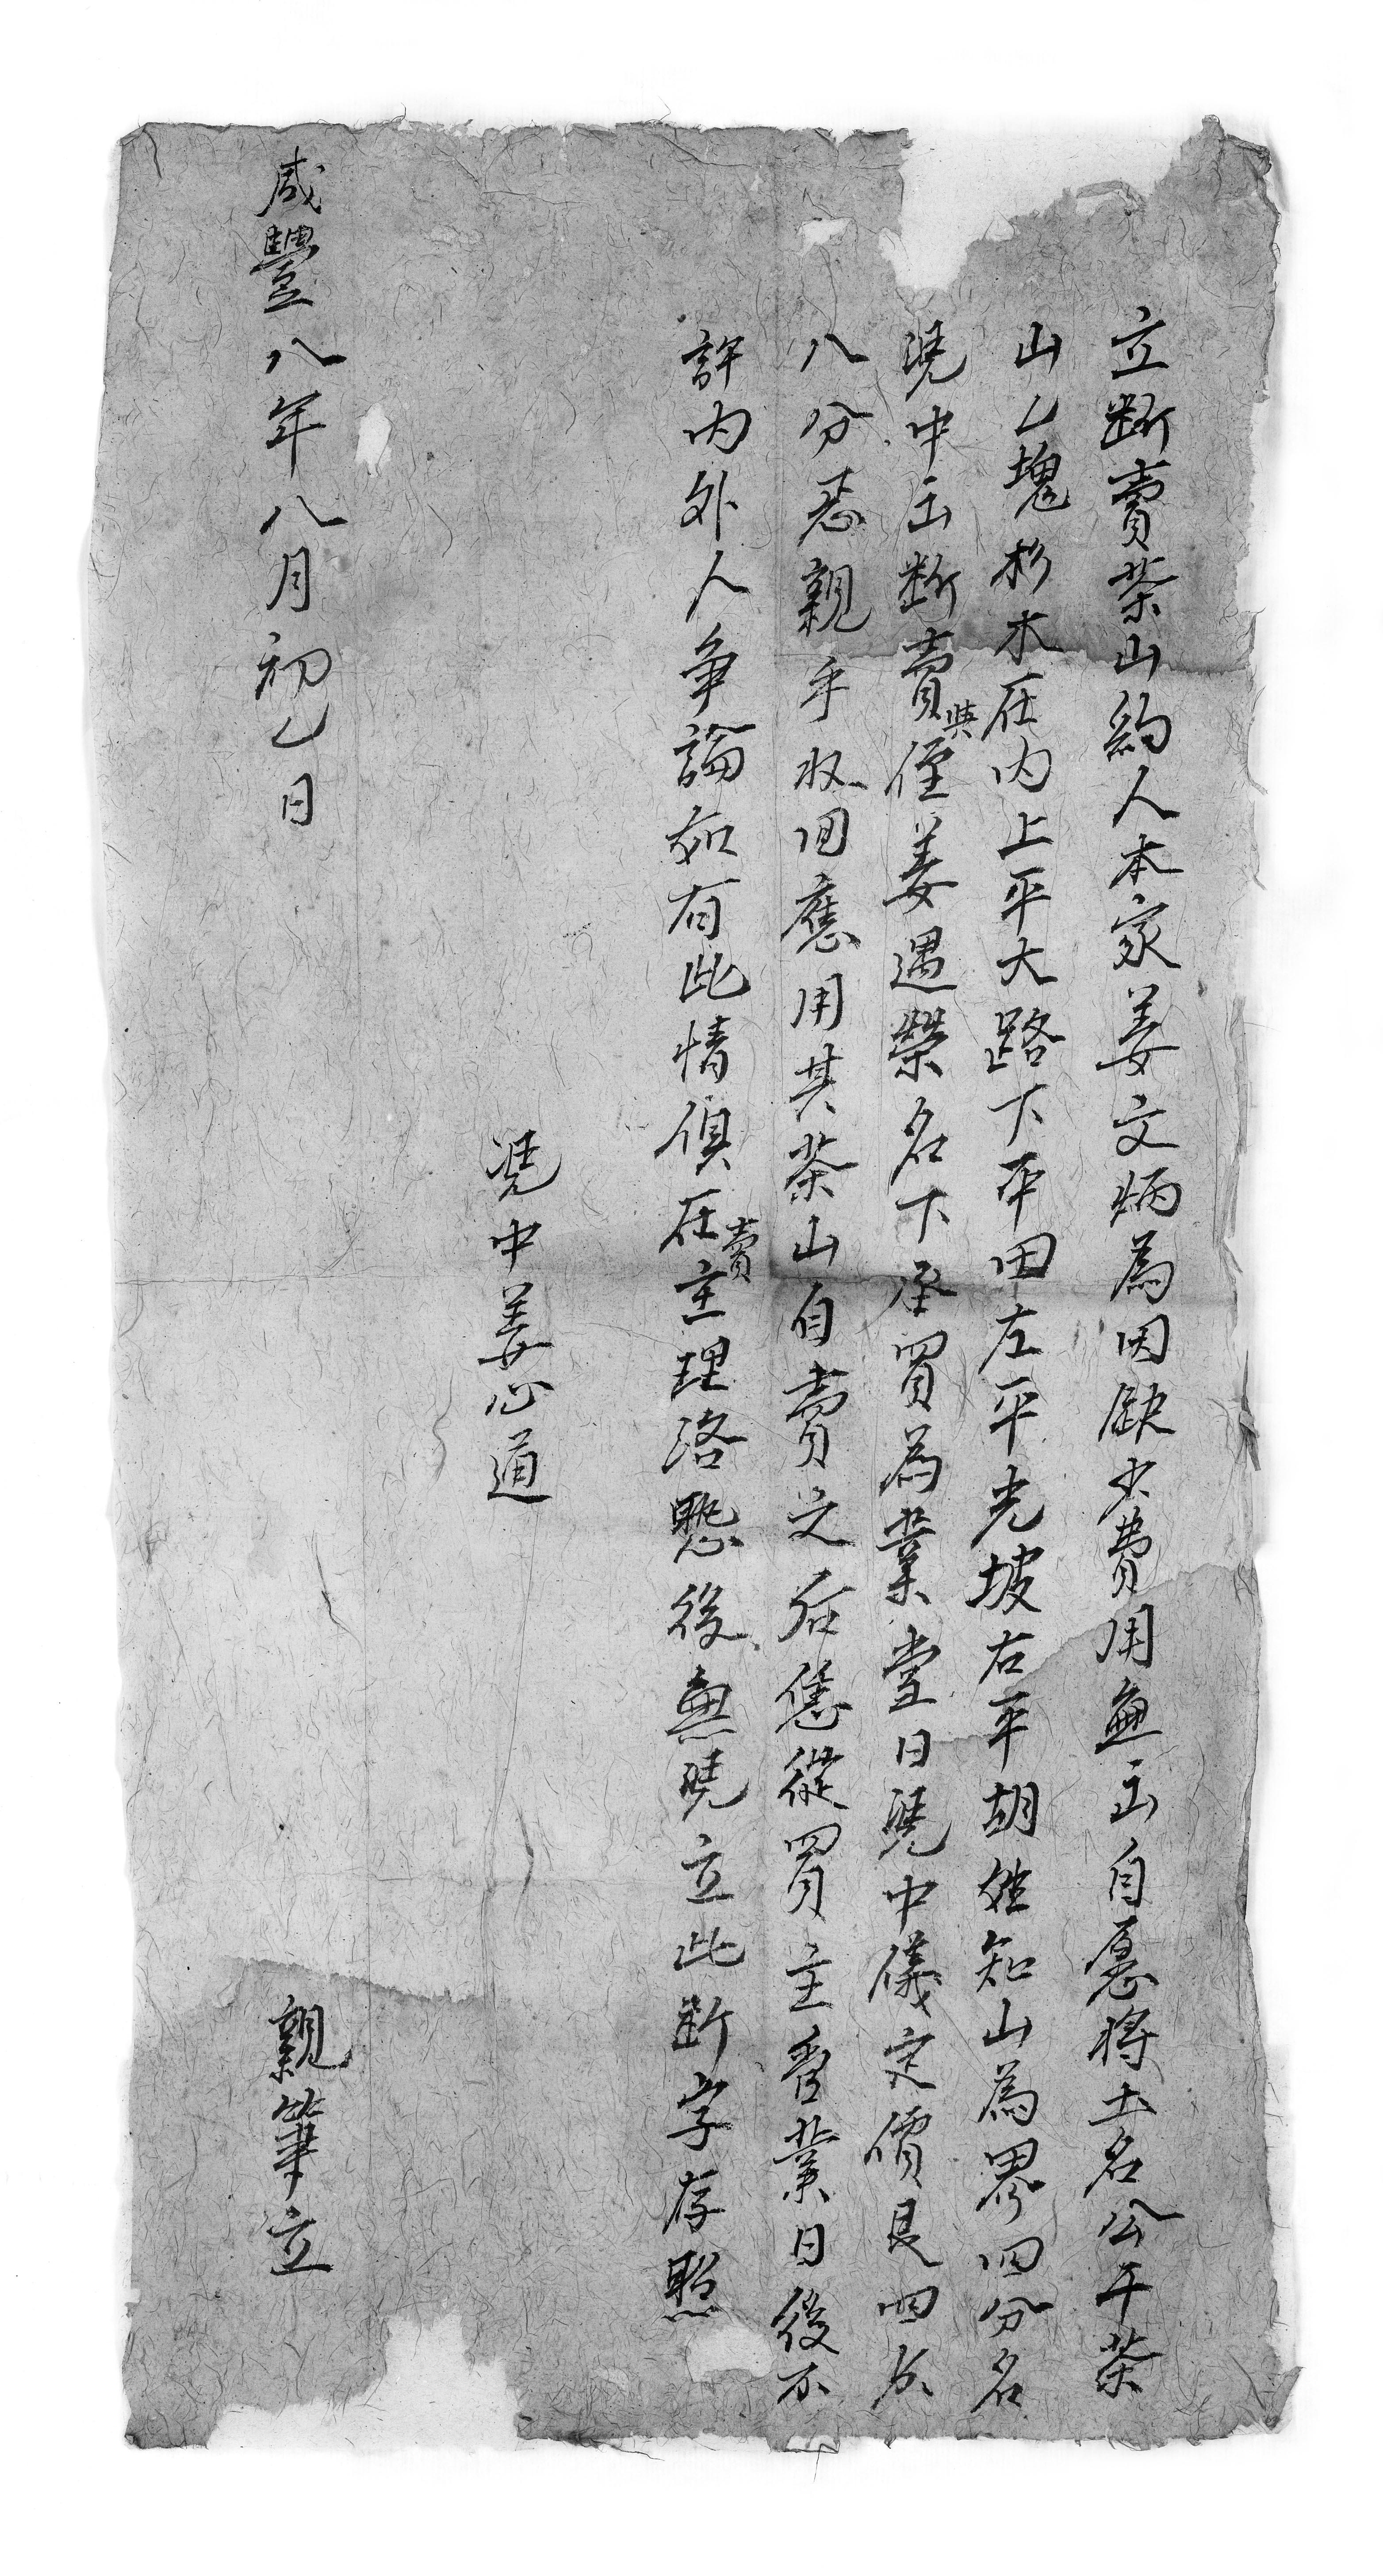 立断賣茶山約人本家姜文炳為因缺少費用無出自愿將土名公干茶
山乙塊杉木在内上平大路下平田左平光坡右平胡姓知山為界四分名
凴中出断賣與侄姜遇榮名下承買為業當日凴中儀定價艮四錢
八分悉親手收囬應用其茶山自賣之后恁從買主管業日後不
許内外人争論如有此情俱在賣主理洛恐後無凴立此断字存照
凴中姜心道
咸豐八年八月初乙日
親筆立